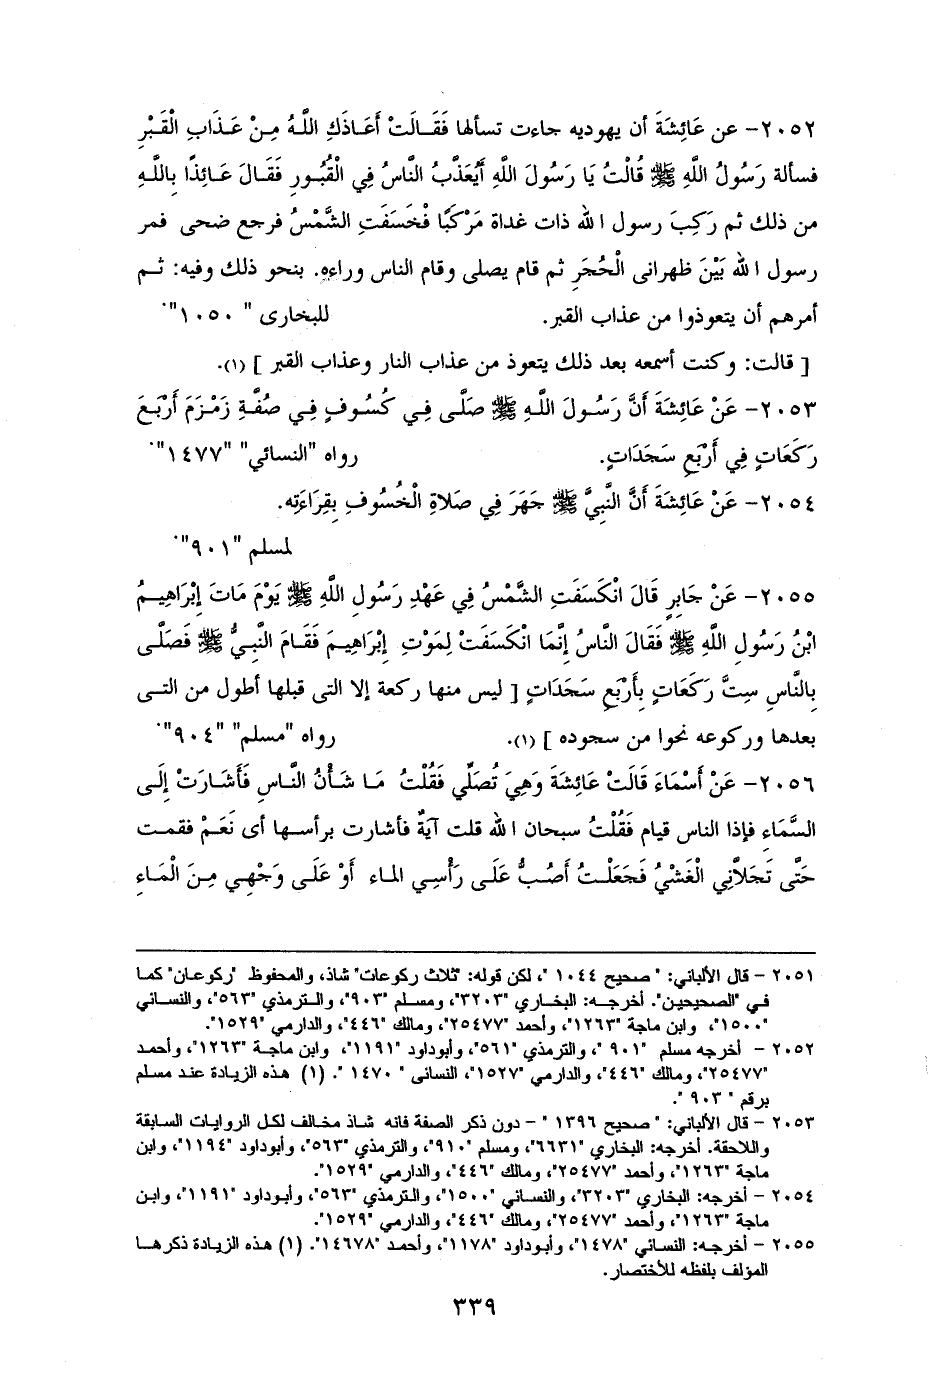 ٢٠٥٢- عن عَائِشَةَ أن يهوديه جاءت تسألها فَقَالَتْ أَعَاذَكِ اللَّهُ مِنْ عَذَابِ الْقَبْرِ
فسألة رَسُولُ اللَّهِ ﷺ قُالْتُ يَا رَسُولَ اللَّهِ أَيُعَذَّبُ النَّاسُ فِي الْقُبُورِ فَقَالَ عَائِذًا بِاللَّهِ
من ذلك ثم رَكِبَ رسول الله ذات غداة مَرْكَبًا فْخَسَفَتِ الشَّمْسُ فرجع ضحى فمر
رسول الله بَيْنَ ظهرانى الْحُجَرِ ثم قام يصلى وقام الناس وراءه. بنحو ذلك وفيه: ثم
أمرهم أن يتعوذوا من عذاب القبر. للبخارى " ١٠٥٠".
[ قالت: وكنت أسمعه بعد ذلك يتعوذ من عذاب النار وعذاب القبر ] (١).
٢٠٥٣- عَنْ عَائِشَةَ أَنَّ رَسُولَ اللَّهِ ﷺ صَلَّى فِي كُسُوفٍ فِي صُفَّةِ زَمْزَمَ أَرْبَعَ
رَكَعَاتٍ فِي أَرْبَعِ سَجَدَاتٍ. رواه "النسائي" "١٤٧٧".
٢٠٥٤- عَنْ عَائِشَةَ أَنَّ النَّبِيَّ ﷺ جَهَرَ فِي صَلَاةِ الْخُسُوفِ بِقِرَاءَتِه.
لمسلم "٩٠١".
٢٠٥٥- عَنْ جَابِرٍ قَالَ انْكَسَفَتِ الشَّمْسُ فِي عَهْدِ رَسُولِ اللَّهِ ﷺ يَوْمَ مَاتَ إِبْرَاهِيمُ
ابْنُ رَسُولِ اللَّهِ ﷺ فَقَالَ النَّاسُ إِنَّمَا انْكَسَفَتْ لِمَوْتِ إِبْرَاهِيمَ فَقَامَ النَّبِيُّ ﷺ فَصَلَّى
بِالنَّاسِ سِتَّ رَكَعَاتٍ بِأَرْبَعِ سَجَدَاتٍ [ ليس منها ركعة إلا التى قبلها أطول من التى
بعدها وركوعه نحوا من سجوده ] (١). رواه "مسلم" "٩٠٤".
٢٠٥٦- عَنْ أَسْمَاءَ قَالَتْ عَائِشَةَ وَهِيَ تُصَلِّي فَقُلْتُ مَا شَأْنُ النَّاسِ فَأَشَارَتْ إِلَى
السَّمَاءِ فإذا الناس قيام فَقُلْتُ سبحان الله قلت آيَةٌ فأشارت برأسها أى نَعَمْ فقمت
حَتَّى تَجَلاَّنِي الْغَشْيُ فَجَعَلْتُ أَصُبُّ عَلَى رَأْسِي الماء أَوْ عَلَى وَجْهِي مِنَ الْمَاءِ
٢٠٥١ - قال الألباني: " صحيح ١٠٤٤ "، لكن قوله: "ثلاث ركوعات" شاذ، والمحفوظ "ركوعان" كما
في "الصحيحين". أخرجه: البخاري "٣٢٠٣"، ومسلم "٩٠٣"، والترمذي "٥٦٣"، والنسائي
"١٥٠٠"، وابن ماجة "١٢٦٣"، وأحمد "٢٥٤٧٧"، ومالك "٤٤٦"، والدارمي "١٥٢٩".
٢٠٥٢ - أخرجه مسلم "٩٠١ "، والترمذي "٥٦١"، وأبوداود "١١٩١"، وابن ماجة "١٢٦٣"، وأحمد
"٢٥٤٧٧"، ومالك "٤٤٦"، والدارمي "١٥٢٧"، النسائى " ١٤٧٠ ". (١) هذه الزيادة عند مسلم
برقم " ٩٠٣ ".
٢٠٥٣ - قال الألباني: " صحيح ١٣٩٦ " - دون ذكر الصفة فانه شاذ مخالف لكل الروايات السابقة
واللاحقة. أخرجه: البخاري "٦٦٣١"، ومسلم "٩١٠"، والترمذي "٥٦٣"، وأبوداود "١١٩٤"، وابن
ماجة "١٢٦٣"، وأحمد "٢٥٤٧٧"، ومالك "٤٤٦"، والدارمي "١٥٢٩".
٢٠٥٤ - أخرجه: البخاري "٣٢٠٣"، والنسائي "١٥٠٠"، والترمذي "٥٦٣"، وأبوداود "١١٩١"، وابن
ماجة "١٢٦٣"، وأحمد "٢٥٤٧٧"، ومالك "٤٤٦"، والدارمي "١٥٢٩".
٢٠٥٥ - أخرجه: النسائي "١٤٧٨"، وأبوداود "١١٧٨"، وأحمد "١٤٦٧٨". (١) هذه الزيادة ذكرها
المؤلف بلفظه للأختصار.
٣٣٩